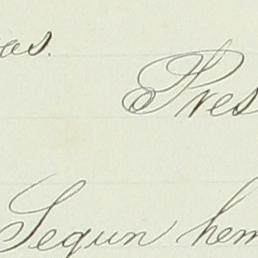 as.
Pres
Segun hem